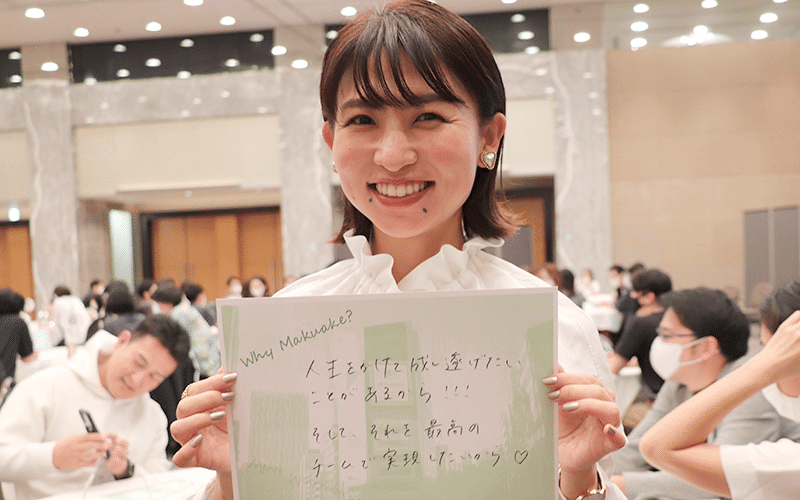 Why Makuake?
人生をかけて成し遂げたい
ことがあるから!!!
そして、それを最高の
チームで実現したいから♡